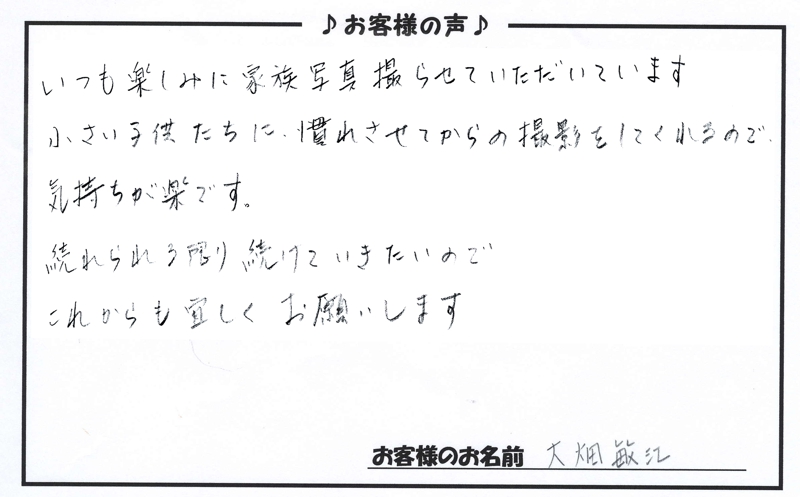 ♪お客様の声♪
いつも楽しみに家族写真撮らせていただいています
小さい子供たちに、慣れさせてからの撮影をしてくれるので、
気持ちが楽です。
続れられる限り続けていきたいので
これからも宜しくお願いします
お客様のお名前 大畑敏江